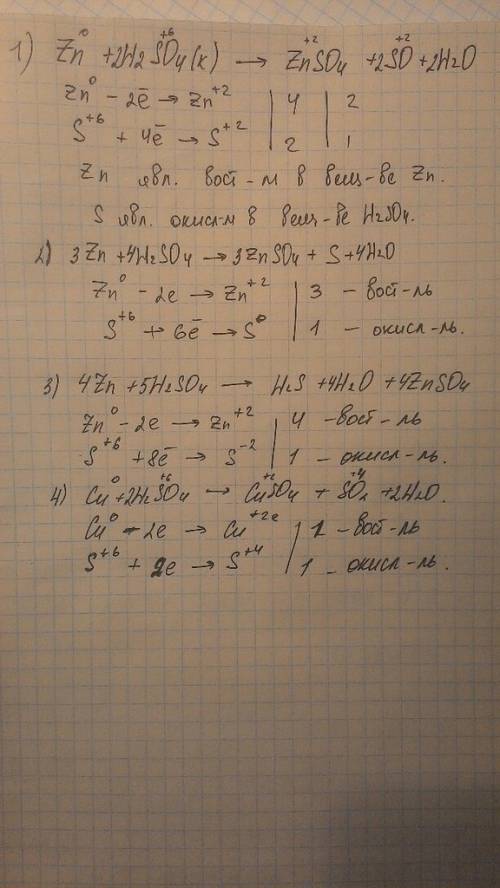 1) Zn⁰ + 2H2S⁺⁶O4(к) → Zn⁺²SO4 + 2S⁺²O + 2H2O
Zn⁰ - 2ē → Zn⁺² | 4 | 2
S⁺⁶ + 4ē → S⁺² | 2 | 1
Zn явл. вост-м в вещ-ве Zn.
S явл. окисл-м в вещ-ве H2SO4.
2) 3Zn + 4H2SO4 → 3ZnSO4 + S + 4H2O
Zn⁰ - 2e → Zn⁺² | 3 - вост-ль
S⁺⁶ + 6ē → S⁰ | 1 - окисл-ль.
3) 4Zn + 5H2SO4 → H2S + 4H2O + 4ZnSO4
Zn⁰ - 2e → Zn⁺² | 4 - вост-ль
S⁺⁶ + 8ē → S⁻² | 1 - окисл-ль.
4) Cu⁰ + 2H2S⁺⁶O4 → Cu⁺²SO4 + S⁺⁴O2 + 2H2O.
Cu⁰ - 2e → Cu⁺²ᵉ | 1 - вост-ль
S⁺⁶ + 2e → S⁺⁴ | 1 - окисл-ль.